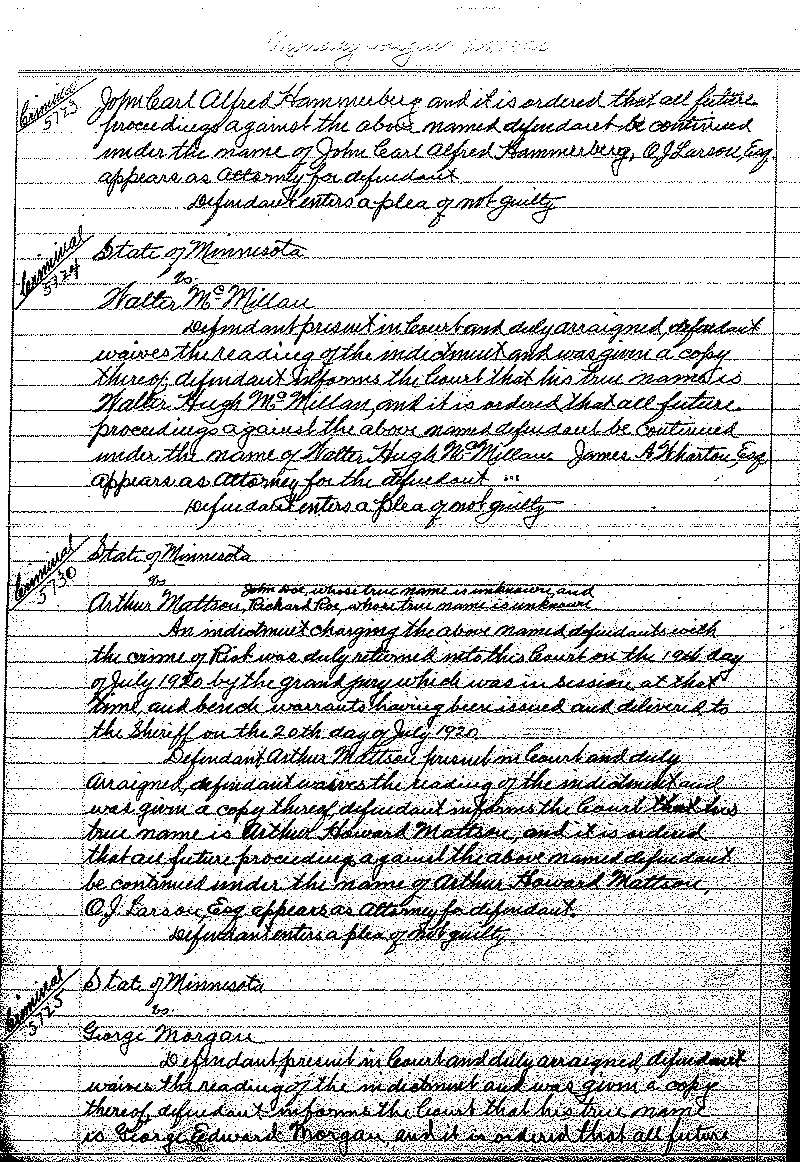 Criminal
5723
John Carl Alfred Hammerberg and it is ordered that all future
proceedings against the above named defendant be continued
under the name of John Carl Alfred Hammerberg, O.J. Larson, Esq.
appears as Attorney for defendant
Defendant enters a plea of not guilty
Criminal
5724
State of Minnesota
vs.
Walter McMillan
Defendant present in Court and duly arraigned, defendant
waives the reading of the indictment and was given a copy
thereof, defendant informs the Court that his true name is
Walter Hugh McMillan, and it is ordered that all future
proceedings against the above named defendant be continued
under the name of Walter Hugh McMillan. James A Wharton, Esq
appears as Attorney for the defendant
Defendant enters a plea of not guilty
Criminal
5730
State of Minnesota
vs
John Doe, whose true name is unknown, and
Arthur Mattson, Richard Roe, whose true name is unknown
An indictment charging the above named defendants with
the crime of Riot was duly returned into this Court on the 19th day
of July 1920 by the grand jury which was in session at that
time, and bench warrants having been issued and delivered to
the Sheriff on the 20th day of July 1920
Defendant Arthur Mattson present in Court and duly
arraigned, defendant waives the reading of the indictment and
was given a copy thereof, defendant informs the Court that his
true name is Arthur Howard Mattson, and it is ordered
that all future proceeding against the above named defendant
be continued under the name of Arthur Howard Mattson,
O.J. Larson, Esq appears as Attorney for defendant.
Defendant enters a plea of not guilty
Criminal
5725
State of Minnesota
vs.
George Morgan
Defendant present in Court and duly arraigned, defendant
waives the reading of the indictment and was given a copy
thereof, defendant informs the Court that his true name
is George Edward Morgan, and it is ordered that all future